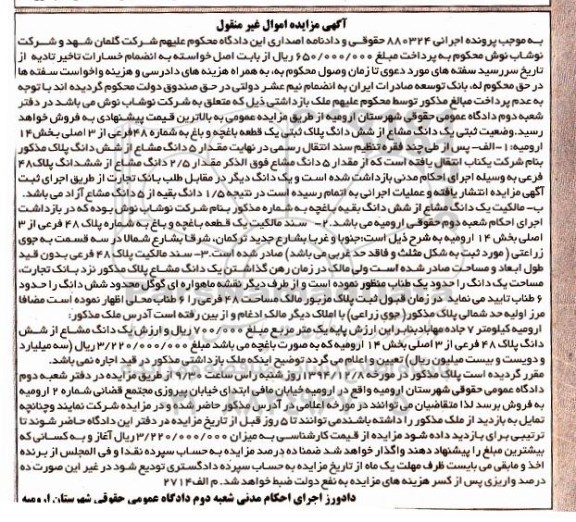 آگهی مزایده اموال غیر منقول
به موجب پرونده اجرائی ۸۸۰۳۲۴ حقوقی و دادنامه اصداری این دادگاه محکوم علیهم شرکت گلمان شهد و شرکت
نوشاب نوش محکوم به پرداخت مبلغ ۶۵۰/۰۰۰/۰۰۰ ریال از بابت اصل خواسته به انضمام خسارات تاخیر تادیه از
تاریخ سررسید سفته های مورد دعوی تا زمان وصول محکوم به، به همراه هزینه های دادرسی و هزینه واخواست سفته ها
در حق محکوم له، بانک توسعه صادرات ایران به انضمام نیم عشر دولتی در حق صندوق دولت محکوم گردیده اند با توجه
به عدم پرداخت مبالغ مذکور توسط محکوم علیهم ملک بازداشتی ذیل که متعلق به شرکت نوشاب نوش می باشد در دفتر
شعبه دوم دادگاه عمومی حقوقی شهرستان ارومیه از طریق مزایده عمومی به بالاترین قیمت پیشنهادی به فروش خواهد
رسید.وضعیت ثبتی یک دانگ مشاع از شش دانگ پلاک ثبتی یک قطعه باغچه و باغ به شماره ۴۸ فرعی از ۳ اصلی بخش۱۴
ارومیه: ۱-الف- پس از طی چند فقره تنظیم سند انتقال رسمی در نهایت مقدار ۵ دانگ مشاع از شش دانگ پلاک مذکور
بنام شرکت یکتاب انتقال یافته است که از مقدار ۵ دانگ مشاع فوق الذکر مقدار ۲/۵ دانگ مشاع از ششدانگ پلاک۴۸
فرعی به وسیله اجرای احکام مدنی بازداشت شده است و یک دانگ دیگر در مقابل طلب بانک تجارت از طریق اجرای ثبت
آگهی مزایده انتشار یافته و عملیات اجرائی به اتمام رسیده است در نتیجه ۱/۵ دانگ بقیه از ۵ دانگ مشاع آزاد می باشد.
ب- مالکیت یک دانگ مشاع از شش دانگ بقیه باغچه به شماره مذکور بنام شرکت نوشاب نوش بوده که در بازداشت
اجرای احکام شعبه دوم حقوقی ارومیه می باشد. سند مالکیت یک قطعه باغچه و باغ به شماره پلاک ۴۸ فرعی از ۳
اصلی بخش ۱۴ ارومیه به شرح ذیل است:جنوبا و غربا بشارع جدید ترکمان، شرقا بشارع شمالا در سه قسمت به جوی
زراعتی (مورد ثبت به شکل مثلث و فاقد حد غربی می باشد) صادر شده است.۳- سند مالکیت پلاک ۴۸ فرعی بدون قید
طول ابعاد و مساحت صادر شده است ولی مالک در زمان رهن گذاشتن یک دانگ مشاع پلاک مذکور نزد بانک تجارت،
مساحت یک دانگ را حدود یک طناب منظور نموده است و از طرف دیگر نقشه ماهواره ای گوگل محدود شش دانگ را حدود
۶ طناب تایید می نماید در زمان قبول ثبت پلاک مزبور مالک مساحت ۴۸ فرعی را ۶ طناب محلی اظهار نموده است مضافا
مرز اولیه حد شمالی پلاک مذکور (جوی زراعی) با املاک دیگر مالک ادغام و از بین رفته است آدرس ملک مذکور:
ارومیه کیلومتر ۷ جاده مهاباد بنابر این ارزش پایه یک متر مربع مبلغ ۷۰۰/۰۰۰ ریال و ارزش یک دانگ مشاع از شش
دانگ پلاک ۴۸ فرعی از ۳ اصلی بخش ۱۴ ارومیه که به صورت باغچه می باشد مبلغ ۳/۲۲۰/۰۰۰/۰۰۰ ریال (سه میلیارد
و دویست و بیست میلیون ریال) تعیین و اعلام می گردد توضیح اینکه ملک بازداشتی مذکور در قید اجاره نمی باشد.
مقرر گردیده است پلاک مذکور در مورخه ۱۳۹۴/۱۲/۸ روز شنبه راس ساعت ۹/۳۰ از طریق مزایده در دفتر شعبه دوم
دادگاه عمومی حقوقی شهرستان ارومیه واقع در ارومیه خیابان مافی ابتدای خیابان پیروزی مجتمع قضائی شماره ۲ ارومیه
به فروش برسد لذا متقاضیان می توانند در مورخه اعلامی در آدرس مذکور حاضر شده و در مزایده شرکت نمایند وچنانچه
تمایل به بازدید از ملک مذکور را داشته باشند می توانند تا ۵ روز قبل از تاریخ مزایده در دفتر این دادگاه حاضر شوند تا
ترتیبی برای بازدید داده شود مزایده از قیمت کارشناسی به میزان ۳/۲۲۰/۰۰۰/۰۰۰ ریال آغاز و به کسانی که
بیشترین مبلغ را پیشنهاد دهند واگذار خواهد شد ضمنا ده درصد مزایده به حساب سپرده نقدا و فی المجلس از برنده
اخذ و مابقی می بایست ظرف مهلت یک ماه از تاریخ مزایده به حساب سپرده دادگستری تودیع شود در غیر این صورت ده
درصد واریزی پس از کسر هزینه های مزایده به نفع دولت ضبط خواهد شد. م الف۲۷۱۴
دادورز اجرای احکام مدنی شعبه دوم دادگاه عمومی حقوقی شهرستان ارومیه